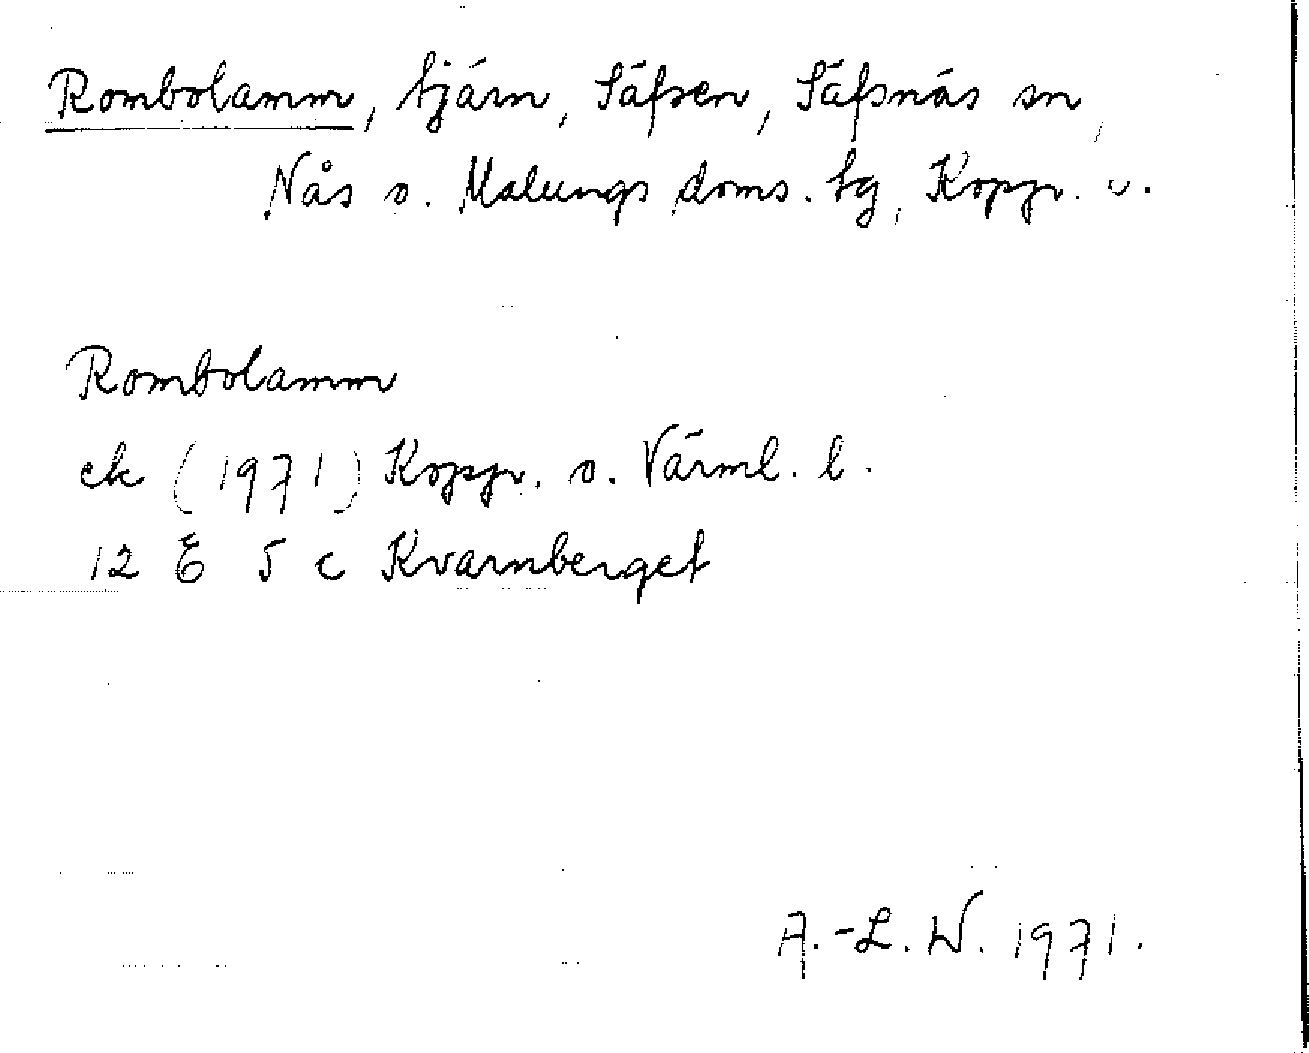 Rombolamm, tjärn, Säfsen, Säfsnäs sn,
Nås o. Malungs doms. tg, Koppr.
Rombolamm
ek (1971) Koppr. o. Värml. l.
12 E 5 c Kvarnberget
A.-L. W. 1971.